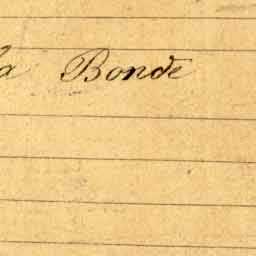 la Bonde